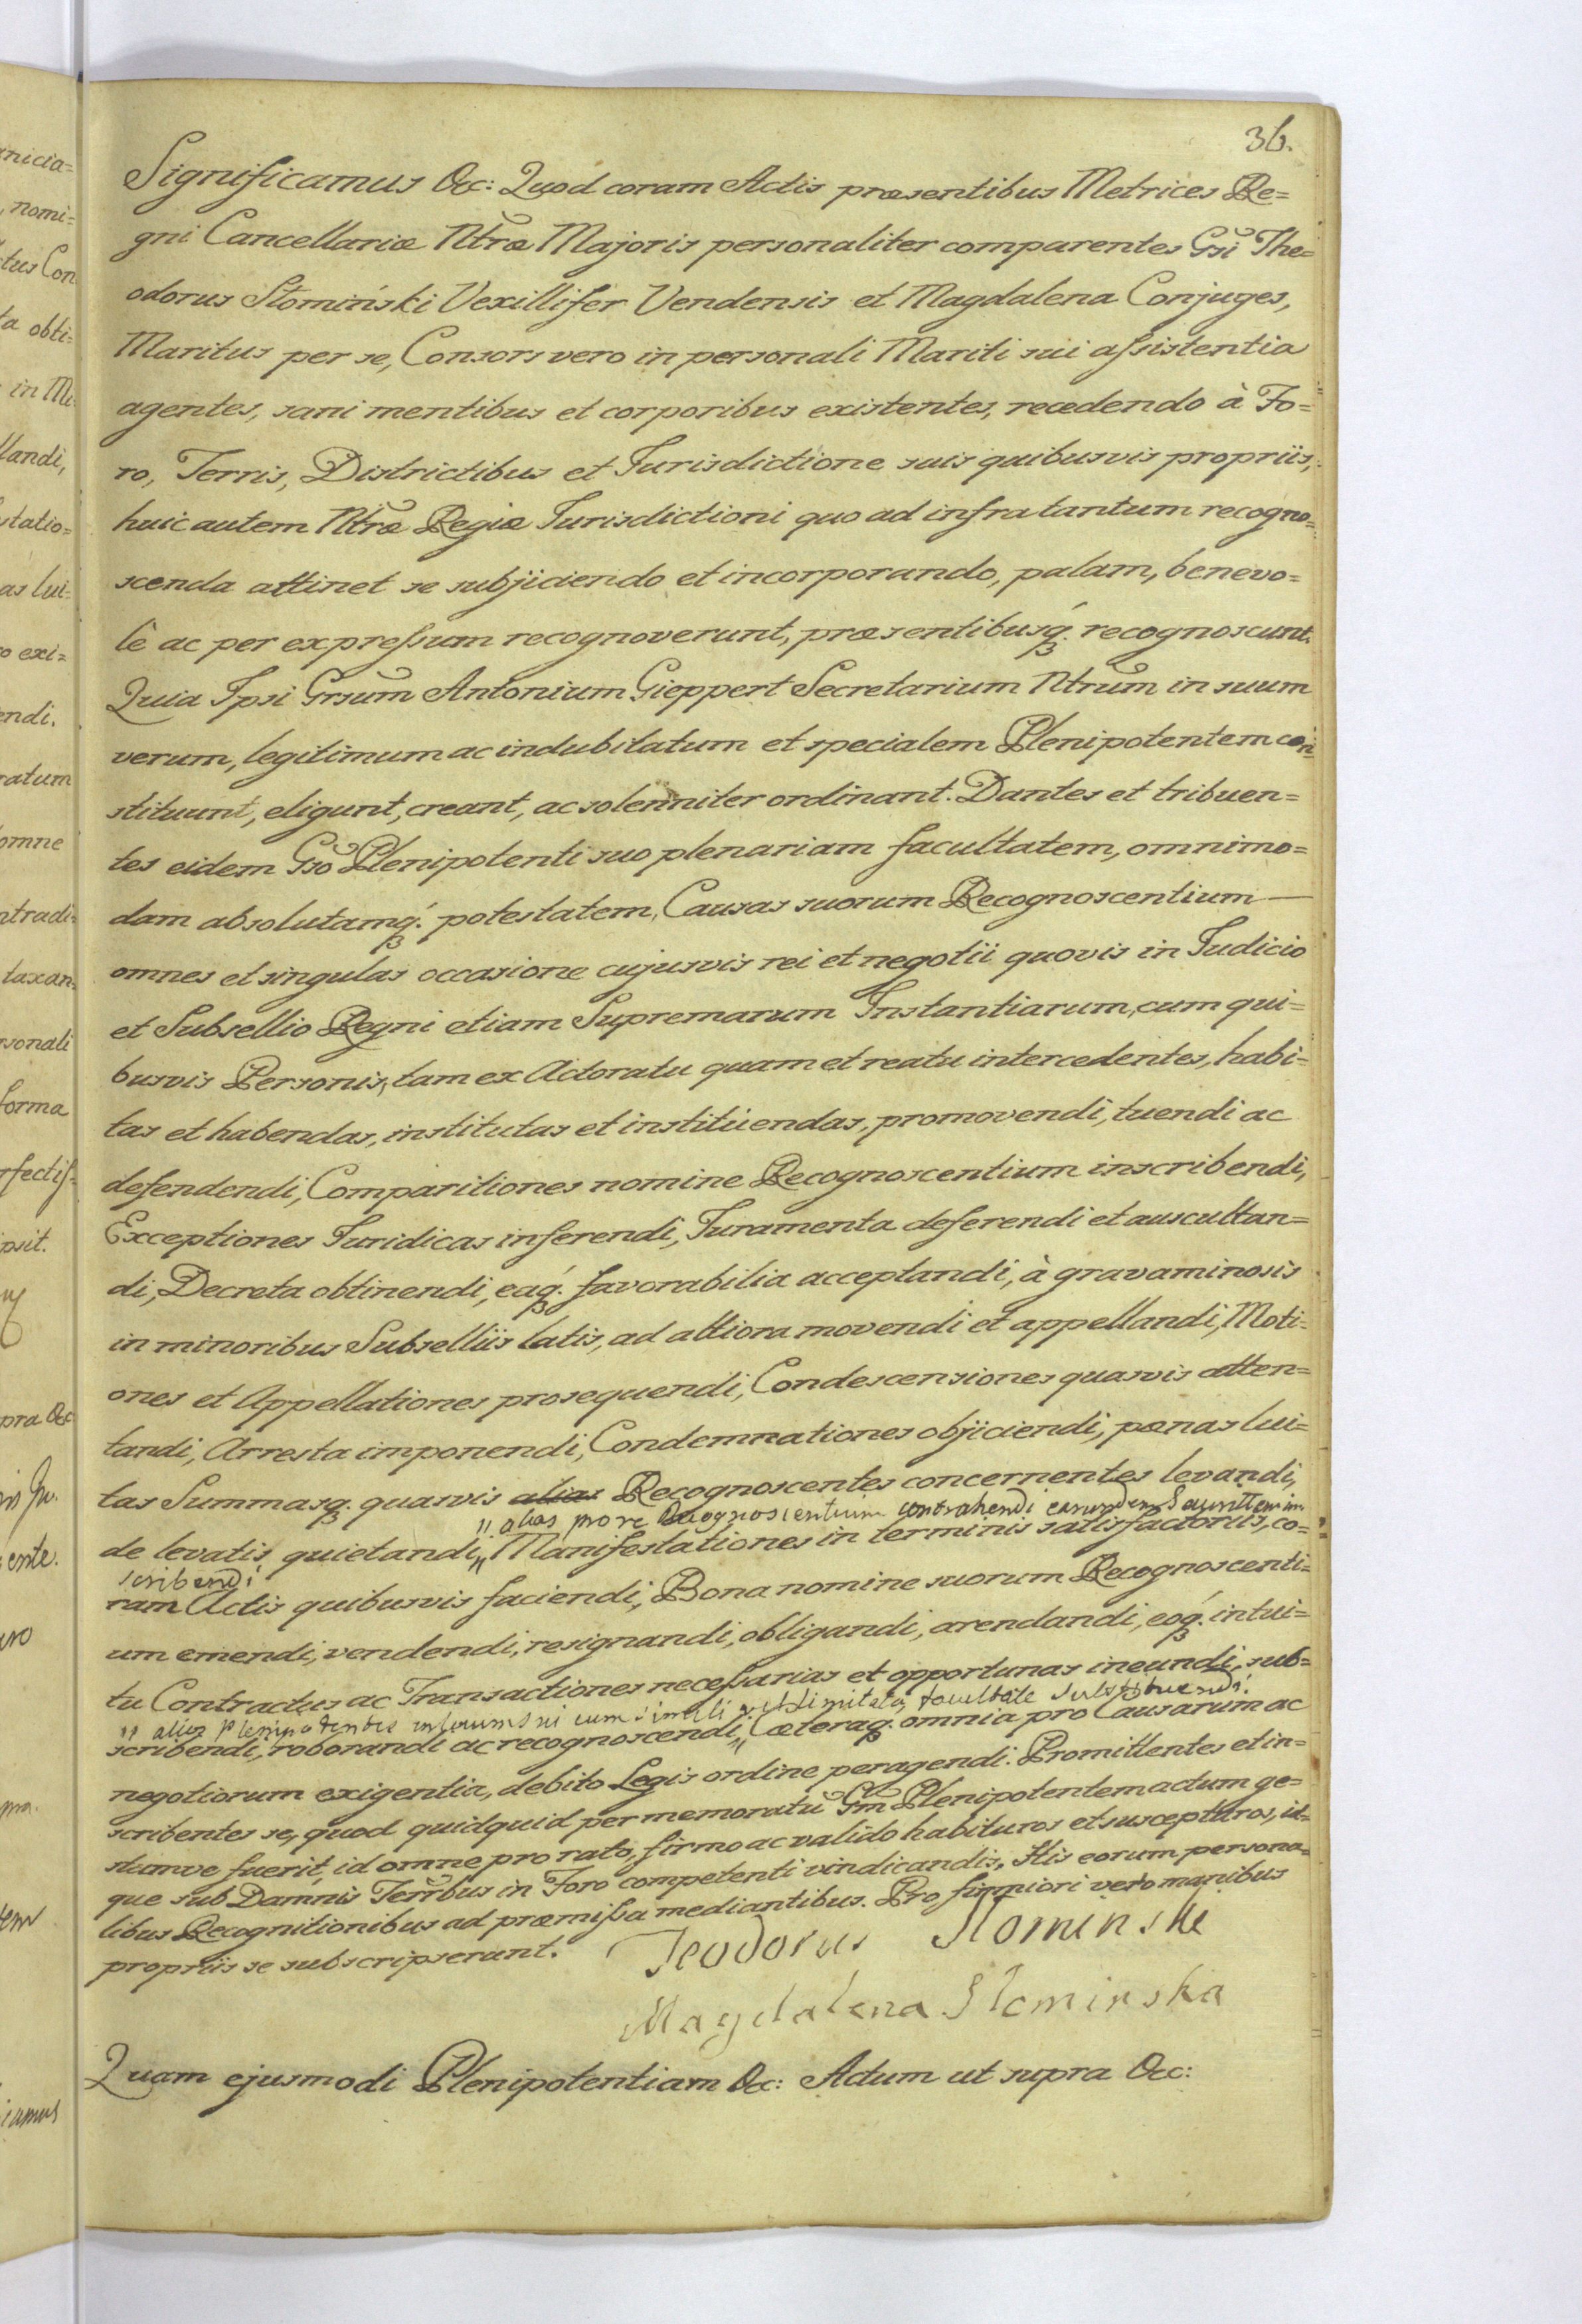 36.
Significamus &c: Quod coram Actis præsentibus Metrices Re=
gni Cancellariæ Ntræ Majoris personaliter comparentes Gsi The=
odorus Słomiński Vexillifer Vendensis et Magdalena Conjuges,
Maritus per se, Consors vero in personali Mariti sui assistentia
agentes, sani mentibus et corporibus existentes, recedendo à Fo=
ro, Terris, Districtibus et Jurisdictione suis quibusvis propriis,
huic autem Ntræ Regiæ Jurisdictioni quo ad infra tantum recogno=
scenda attinet se subjiciendo et incorporando, palam, benevo=
lè ac per expressum recognoverunt, præsentibusq. recognoscunt.
Quia Ipsi Grsum Antonium Gieppert Secretarium Ntrum in suum
verum, legitimum ac indubitatum et specialem Plenipotentem con=
stituunt, eligunt, creant, ac solenniter ordinant. Dantes et tribuen=
tes eidem Gso Plenipotenti suo plenariam facultatem, omnimo=
dam absolutamq. potestatem, Causas suorum Recognoscentium —
omnes et singulas occasione cujusvis rei et negotii quovis in Judicio
et Subsellio Regni etiam Supremarum Instantiarum, cum qui=
busvis Personis, tam ex Actoratu quam et reatu intercedentes, habi=
tas et habendas, institutas et instituendas, promovendi, tuendi ac
defendendi, Comparitiones nomine Recognoscentium inscribendi,
Exceptiones Juridicas inferendi, Juramenta deferendi et auscultan=
di, Decreta obtinendi, eaq. favorabilia acceptandi, à gravaminosis
in minoribus Subselliis latis, ad altiora movendi et appellandi, Moti=
ones et Appellationes prosequendi, Condescensiones quasvis atten=
tandi, Arresta imponendi, Condemnationes objiciendi, pœnas lui=
tas Summasq. quasvis alias Recognoscentes concernentes levandi,
" alias pro re Recognoscentium contrahendi earundem
de levatis quietandi," Manifestationes in terminis satisfactoriis, co=
scribendi
ram Actis quibusvis faciendi, Bona nomine suorum Recognoscenti=
um emendi, vendendi, resignandi, obligandi, arendandi, eoq. intui=
tu Contractus ac Transactiones necessarias et opportunas ineundi, sub=
" alios plenipotentes cum simili vel limitata facultate substituendi
scribendi, roborandi ac recognoscendi," Cæteraq. omnia pro Causarum ac
negotiorum exigentia, debito Legis ordine peragendi. Promittentes et in=
scribentes se, quod quidquid per memoratū Gm Plenipotentem actum ge=
stumve fuerit, id omne pro rato, firmo ac valido habituros et suscepturos, id=
que sub Damnis Terrbus in Foro competenti vindicandis, His eorum persona=
libus Recognitionibus ad præmissa mediantibus. Pro firmiori vero manibus
propriis se subscripserunt.
Teodorus Słominski
Magdalena Slominska
Quam ejusmodi Plenipotentiam &c: Actum ut supra &c: